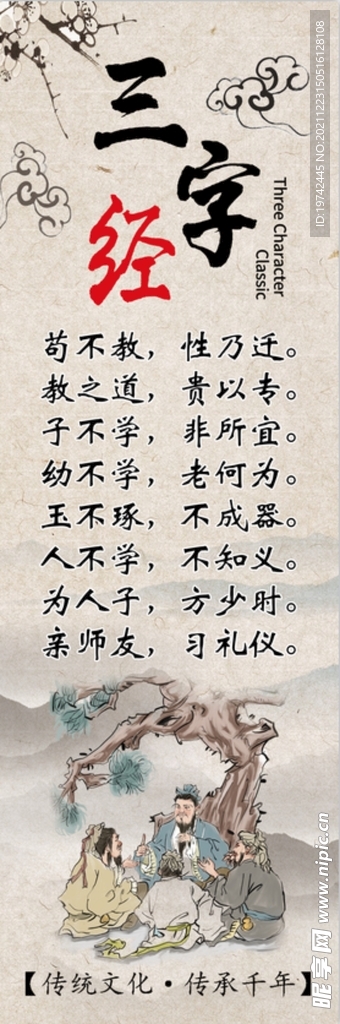 三字经
Three Character
Classic
苟不教，性乃迁。
教之道，贵以专。
子不学，非所宜。
幼不学，老何为。
玉不琢，不成器。
人不学，不知义。
为人子，方少时。
亲师友，习礼仪。
【传统文化·传承千年】
ID:19742445 NO:20211223150516128108
昵享网 www.nipic.cn